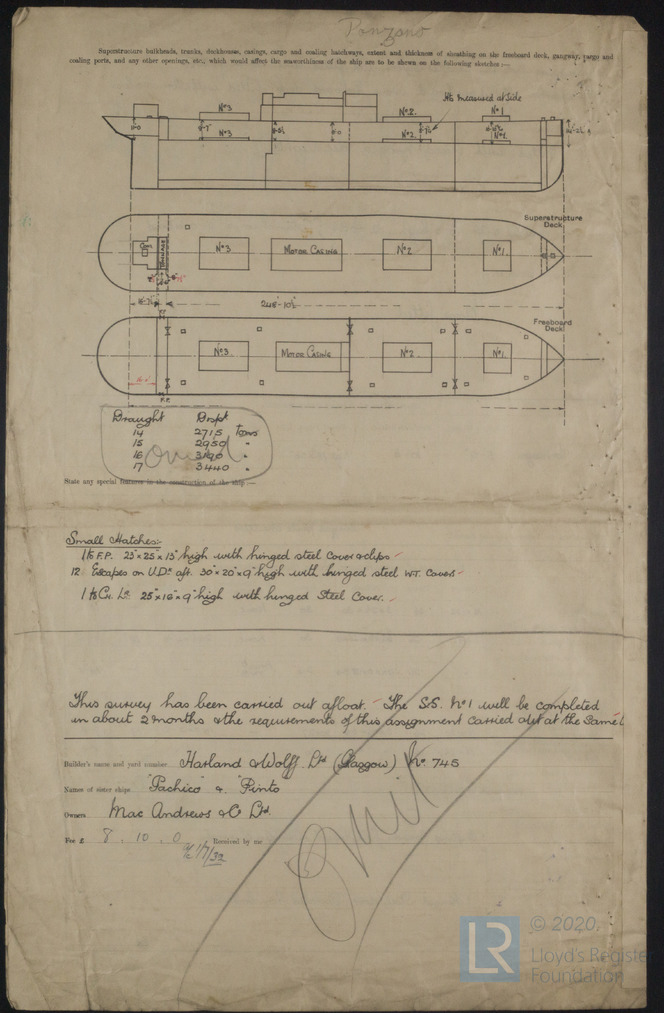 Panzano
Superstructure bulkheads, trunks, deckhouses, casings, cargo and coaling hatchways, extent and thickness of sheathing on the freeboard deck, gangway, cargo and
coaling ports, and any other openings, etc., which would affect the seaworthiness of the ship are to be shown on the following sketches :—
Hts measured at Side
No 3
No 2.
No 1
No 3
No 2.
No 1.
Superstructure
Deck
No 3
Motor Casing
No 2
No 1.
248'-10½"
Freeboard
Deck
No 3
Motor Casing
No 2
No 1.
F.P.
Draught Displt
14 2715 Tons
15 2950 "
16 3190 "
17 3440 "
Omit
State any special features in the construction of the ship :—
Small Hatches:-
1 to F.P. 25" x 25" x 15" high with hinged steel Cover & clips
12 Escapes on U.Dk aft. 30" x 20" x 9" high with hinged steel W.T. Covers
1 to Ch. Lr. 25" x 16" x 9" high with hinged Steel Cover.
This survey has been carried out afloat. The S.S. No 1 will be completed
in about 2 months & the requirements of this assignment carried out at the same
Builder's name and yard number Harland & Wolff Ltd (Glasgow) No. 745
Names of sister ships "Pacheco" & "Pinto"
Owners Mac Andrews & Co Ltd.
Fee £ 8 . 10 . 0 Received by me
1/7/32
Omit
LR
© 2020,
Lloyd's Register
Foundation